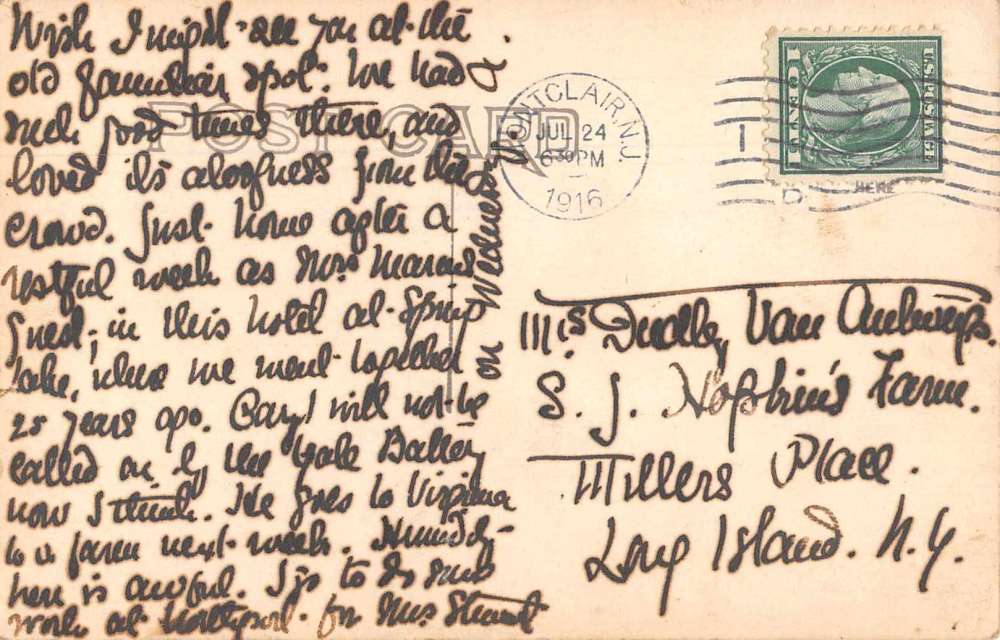 Wish I might see you at the
old familiar spot. We had
such good times there, and
loved its aloofness from the
crowd. Just home after a
restful week as Mrs
guest, in this hotel at Spring
Lake, where we went together
25 years ago. will not be
called on by the Yale Battery
now I think. He goes to Virginia
to a farm next week. Humidity
here is awful. I go to do some
work at for Mrs
on Wednesday.
POST CARD
MONTCLAIR, N.J.
JUL 24
6 30 PM
1916
1 CENT 1
U.S. POSTAGE
HERE
Mrs Dudley Van
S. J. Hopkins Farm.
Millers Place.
Long Island. N.Y.